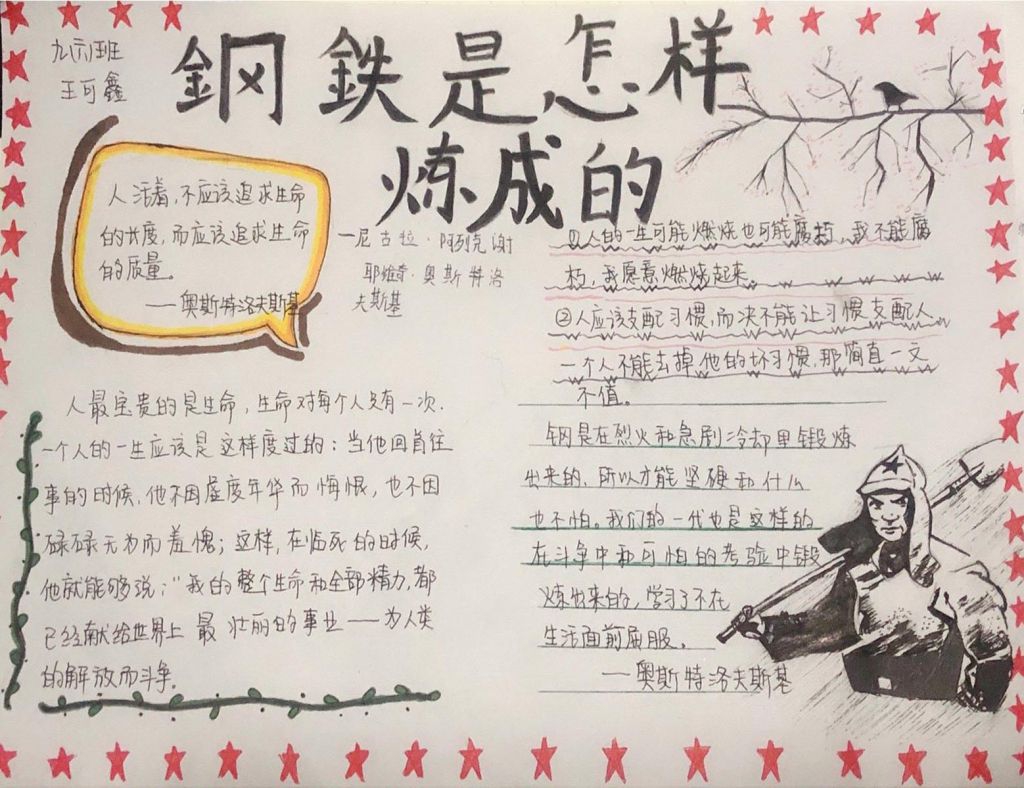 九六班
王可鑫
鋼鉄是怎样
炼成的
人活着,不应该追求生命
的长度,而应该追求生命
的质量。
——奥斯特洛夫斯基
—尼古拉·阿列克谢
耶维奇·奥斯特洛
夫斯基
①人的一生可能燃烧也可能腐朽,我不能腐
朽,我愿意燃烧起来。
②人应该支配习惯,而决不能让习惯支配人。
一个人不能去掉他的坏习惯,那简直一文
不值。
人最宝贵的是生命,生命对每个人只有一次.
一个人的一生应该是这样度过的:当他回首往
事的时候,他不因虚度年华而悔恨,也不因
碌碌无为而羞愧;这样,在临死的时候,
他就能够说:“我的整个生命和全部精力,都
已经献给世界上最壮丽的事业——为人类
的解放而斗争。
钢是在烈火和急剧冷却里锻炼
出来的,所以才能坚硬和什么
也不怕。我们的一代也是这样的
在斗争中和可怕的考验中锻
炼出来的,学习了不在
生活面前屈服。
——奥斯特洛夫斯基